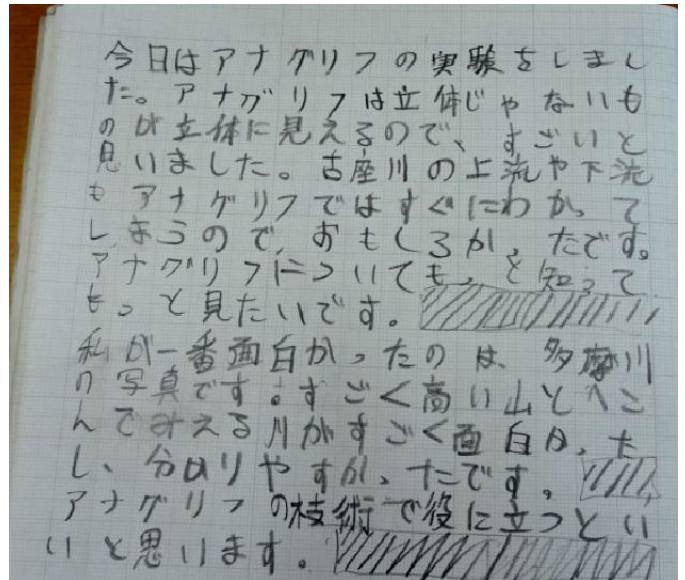 今日はアナグリフの実験をしまし
た。アナグリフは立体じゃないも
のが立体に見えるので、すごいと
見いました。古座川の上流や下流
もアナグリフではすぐにわかって
しまうので、おもしろかったです。
アナグリフについてもっと知って
もっと見たいです。
私が一番面白かったのは、多摩川
の写真です。すごく高い山とへこ
んでみえる川がすごく面白かった
し、分かりやすかったです。
アナグリフの技術で役に立つとい
いと思います。